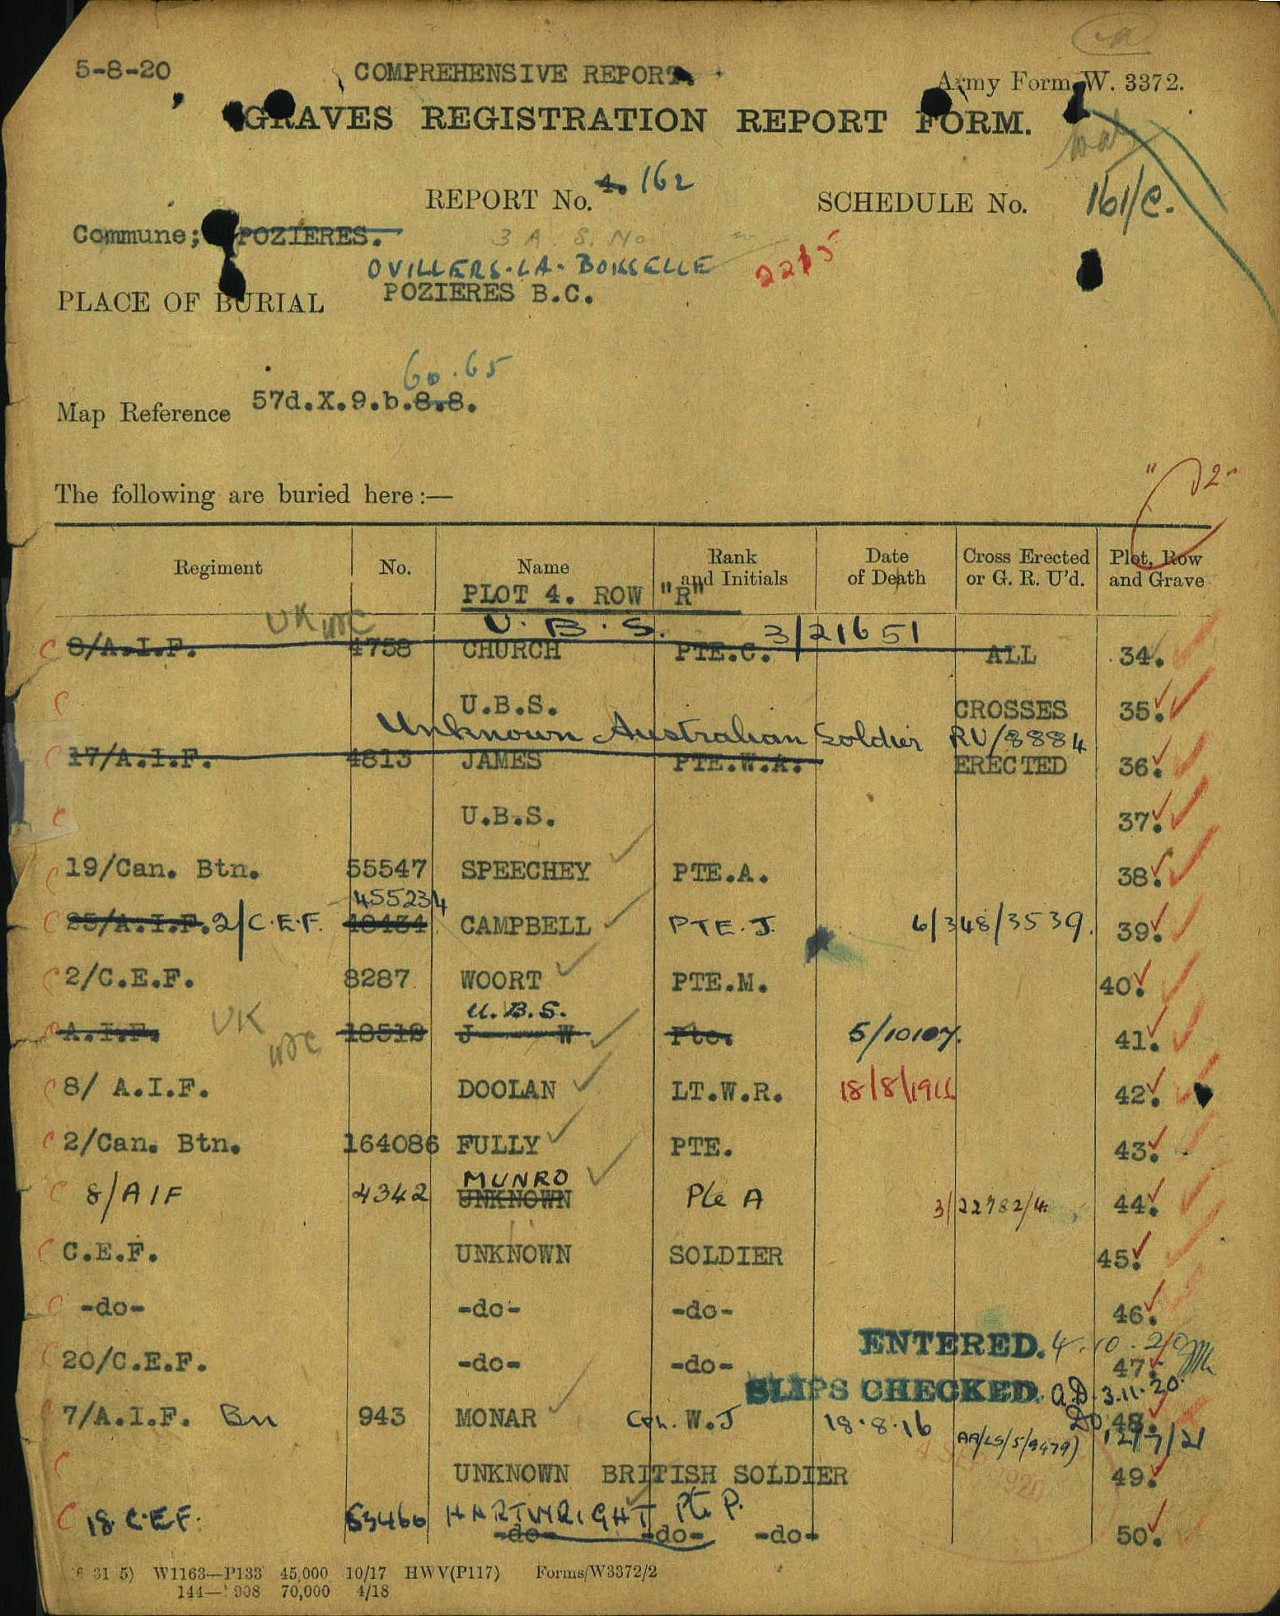 5-8-20 COMPREHENSIVE REPORT.
Army Form W. 3372.
GRAVES REGISTRATION REPORT FORM.
REPORT No. 4. 162 SCHEDULE No. 161/C.
Commune; POZIERES.
OVILLERS-LA-BOISSELLE 2215
PLACE OF BURIAL POZIERES B.C.
60.65
Map Reference 57d.X.9.b.8.8.
The following are buried here:—
Regiment No. Name Rank and Initials Date of Death Cross Erected or G. R. U'd. Plot, Row and Grave
PLOT 4. ROW "R"
UK U.B.S. 3/21651
8/A.I.F. 4758 CHURCH PTE.C. ALL 34.
U.B.S. CROSSES 35.
Unknown Australian Soldier RU/8884
17/A.I.F. 4813 JAMES PTE.W.A. ERECTED 36.
U.B.S. 37.
19/Can. Btn. 55547 SPEECHEY PTE.A. 38.
455234
25/A.I.F. 2/C.E.F. 10434 CAMPBELL PTE.J. 6/348/3539. 39.
2/C.E.F. 8287 WOORT PTE.M. 40.
U.B.S.
A.I.F. UK J W Pte. 5/10107. 41.
8/ A.I.F. DOOLAN LT.W.R. 18/8/1916 42.
2/Can. Btn. 164086 FULLY PTE. 43.
MUNRO
8/AIF 4342 UNKNOWN Pte A 3/22782/4. 44.
C.E.F. UNKNOWN SOLDIER 45.
-do- -do- -do- 46.
ENTERED. 4.10.20
20/C.E.F. -do- -do- 47.
SLIPS CHECKED. a.D. 3.11.20.
7/A.I.F. Bn 943 MONAR W.J 18.8.16 Do 48.
AA/LS/5/9479) 12/7/21
UNKNOWN BRITISH SOLDIER 49.
18 C.E.F. 53460 HARTWRIGHT Pte P.
-do- -do- -do- 50.
W1163—P133 45,000 10/17 HWV(P117) Forms/W3372/2
144— 908 70,000 4/18